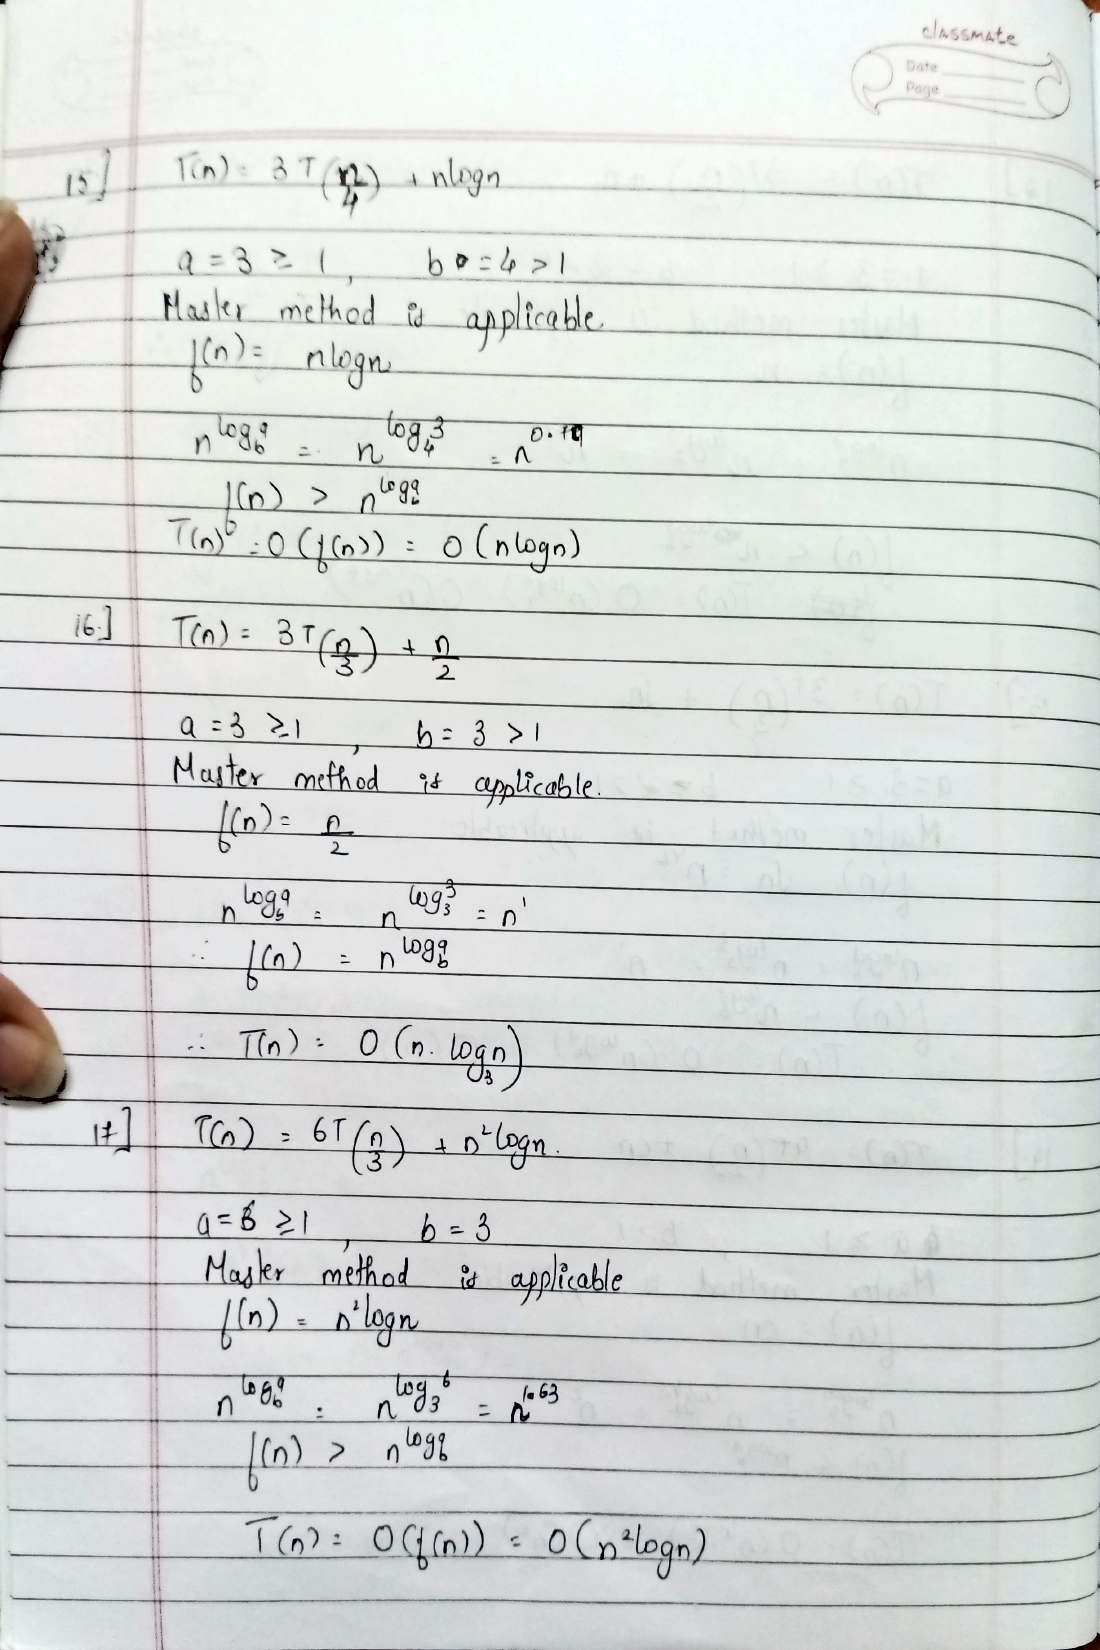 classmate
Date
Page
15] T(n) = 3T(n/4) + nlogn
a = 3 ≥ 1, b = 4 > 1
Master method is applicable.
f(n) = nlogn
n^log_b^a = n^log_4^3 = n^0.79
f(n) > n^log_b^a
T(n) = O(f(n)) = O(nlogn)
16.] T(n) = 3T(n/3) + n/2
a = 3 ≥ 1, b = 3 > 1
Master method is applicable.
f(n) = n/2
n^log_b^a = n^log_3^3 = n^1
∴ f(n) = n^log_b^a
∴ T(n) = O(n. log_3 n)
17] T(n) = 6T(n/3) + n²logn.
a = 6 ≥ 1, b = 3
Master method is applicable
f(n) = n²logn
n^log_b^a = n^log_3^6 = n^1.63
f(n) > n^log_b^a
T(n) = O(f(n)) = O(n²logn)